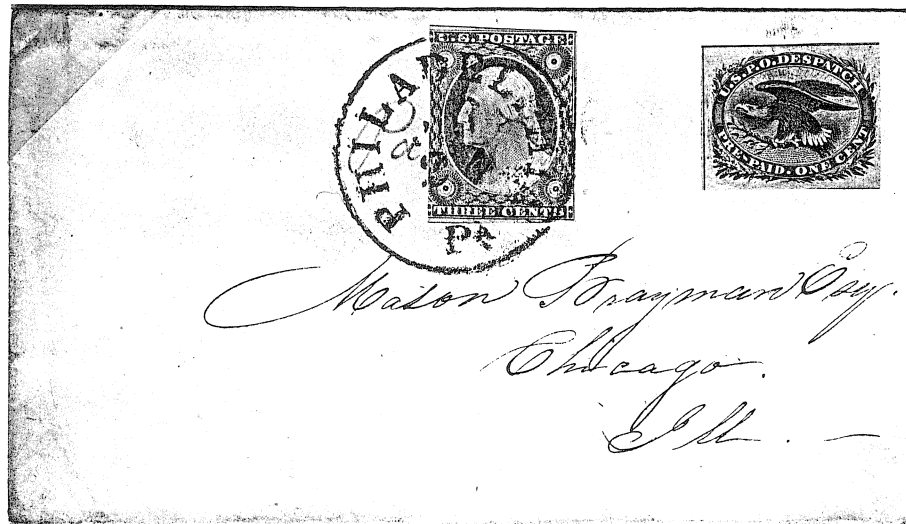 U.S. POSTAGE
THREE CENTS
PHILADELPHIA
Pa
U.S.P.O. DESPATCH
PRE-PAID. ONE CENT
Mason Brayman Esq.
Chicago.
Ill. —